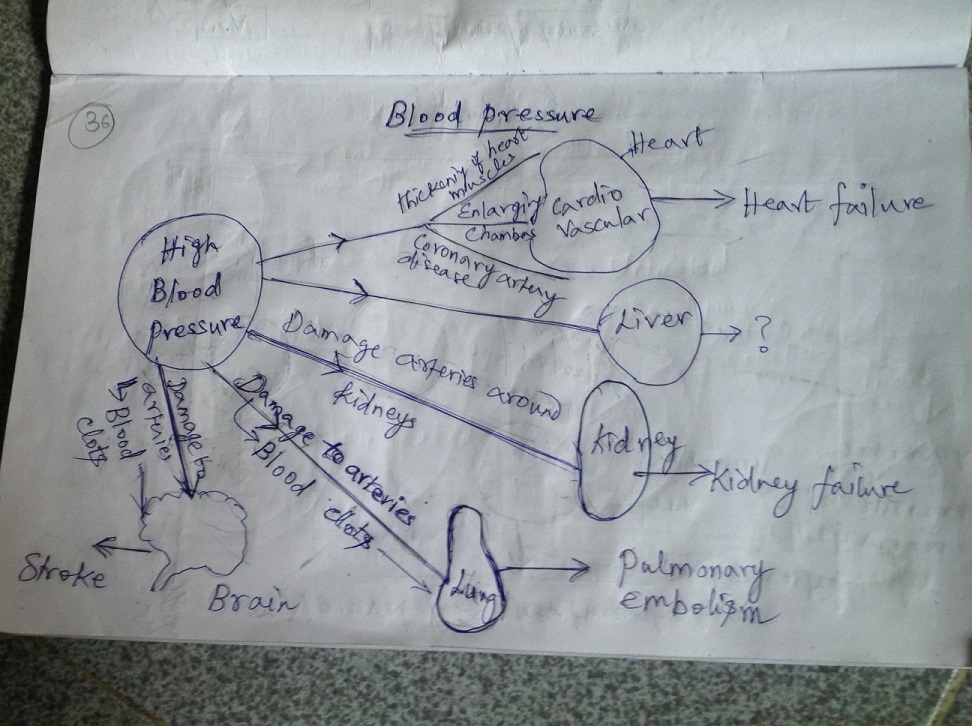 36
Blood pressure
thickenig of heart
muscles
Enlarging
Chambers
Coronary artery
disease
Cardio
Vascular
Heart
Heart failure
High
Blood
Pressure
Liver
?
Damage arteries around
kidneys
Kidney
Kidney failure
Damage to arteries
Blood
clots
Lung
Pulmonary
embolism
Damage to
arteries
Blood
clots
Brain
Stroke